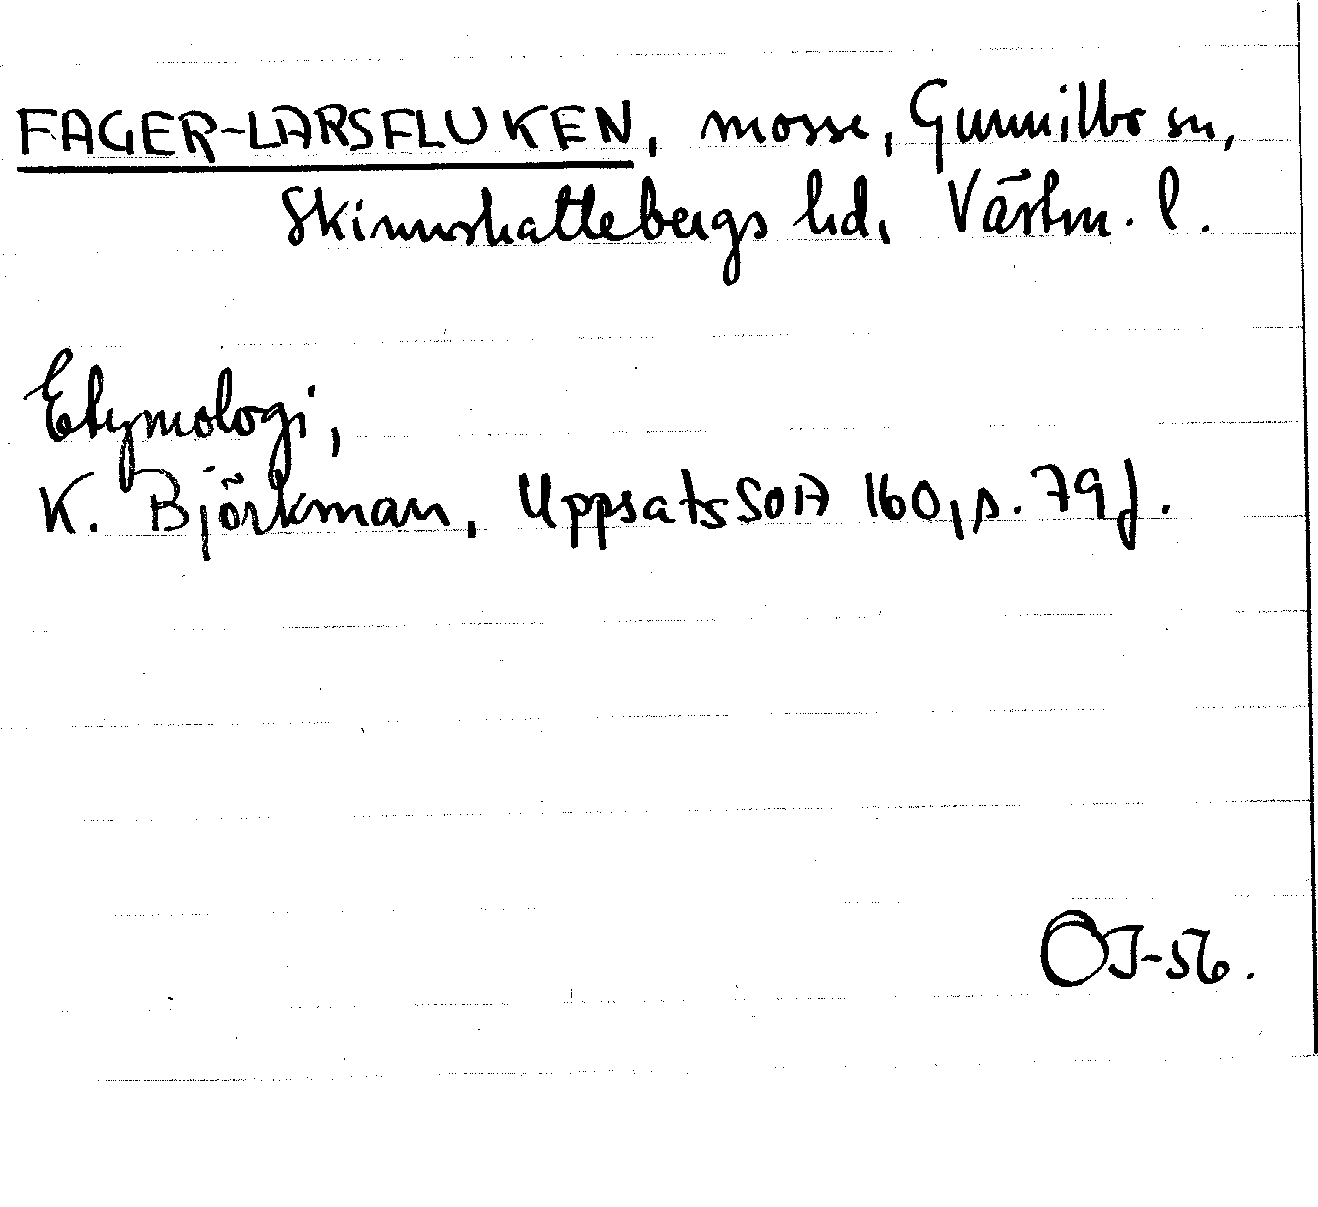 FAGER-LARSFLUKEN, mosse, Gunnilbo sn,
Skinnskattebergs hd, Västm. l.
Etymologi,
K. Björkman, Uppsats SOA 160, s. 79 f.
ÖJ-56.